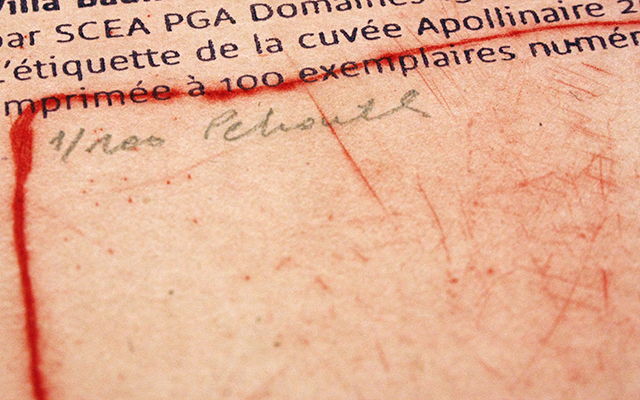 Villa
par SCEA PGA Domaines
L'étiquette de la cuvée Apollinaire 2
imprimée à 100 exemplaires numér
1/100